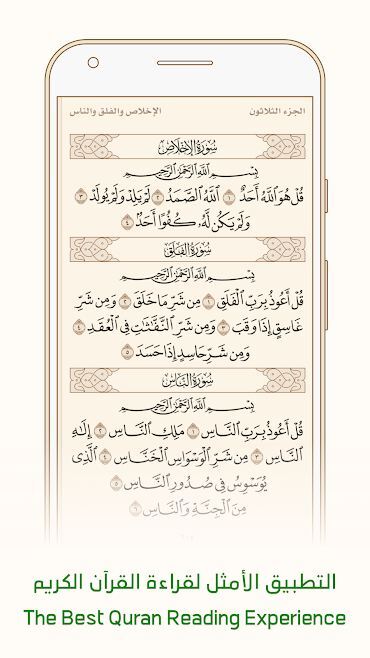 الجزء الثلاثون
الإخلاص والفلق والناس
سُورَةُ الإِخْلَاصِ
بِسْمِ اللَّهِ الرَّحْمَٰنِ الرَّحِيمِ
قُلْ هُوَ اللَّهُ أَحَدٌ ١ اللَّهُ الصَّمَدُ ٢ لَمْ يَلِدْ وَلَمْ يُولَدْ ٣
وَلَمْ يَكُن لَّهُ كُفُوًا أَحَدٌ ٤
سُورَةُ الفَلَقِ
بِسْمِ اللَّهِ الرَّحْمَٰنِ الرَّحِيمِ
قُلْ أَعُوذُ بِرَبِّ الْفَلَقِ ١ مِن شَرِّ مَا خَلَقَ ٢ وَمِن شَرِّ
غَاسِقٍ إِذَا وَقَبَ ٣ وَمِن شَرِّ النَّفَّاثَاتِ فِي الْعُقَدِ ٤
وَمِن شَرِّ حَاسِدٍ إِذَا حَسَدَ ٥
سُورَةُ النَّاسِ
بِسْمِ اللَّهِ الرَّحْمَٰنِ الرَّحِيمِ
قُلْ أَعُوذُ بِرَبِّ النَّاسِ ١ مَلِكِ النَّاسِ ٢ إِلَٰهِ
النَّاسِ ٣ مِن شَرِّ الْوَسْوَاسِ الْخَنَّاسِ ٤ الَّذِي
يُوَسْوِسُ فِي صُدُورِ النَّاسِ ٥
مِنَ الْجِنَّةِ وَالنَّاسِ ٦
التطبيق الأمثل لقراءة القرآن الكريم
The Best Quran Reading Experience